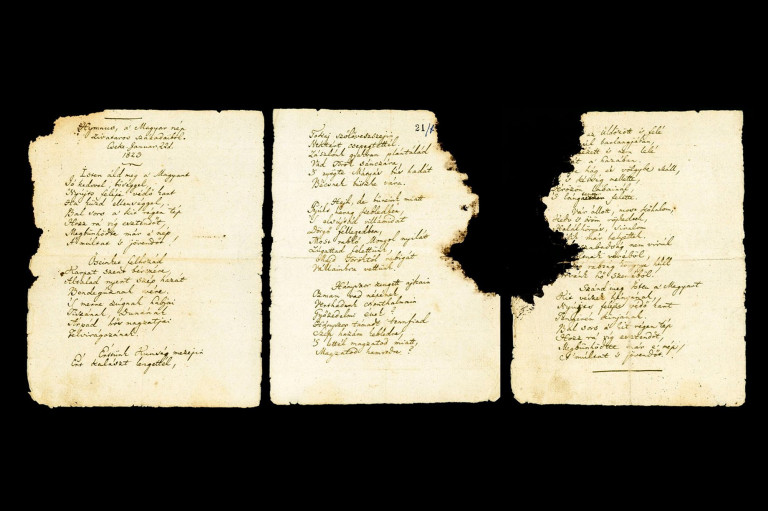 Hymnus, a' Magyar nép
zivataros századaiból.
Cseke, Januar. 22d.
1823
Isten áld meg a' Magyart
Jó kedvvel, bőséggel,
Nyújts feléje védő kart
Ha küzd ellenséggel;
Bal sors a' kit régen tép
Hozz rá víg esztendőt,
Megbünhődte már e' nép
A' multat 's jövendőt.
Őseinket felhozád
Kárpát szent bérczére,
Általad nyert szép hazát
Bendegúznak vére.
'S merre zúgnak habjai
Tiszának, Dunának
Árpád hős magzatjai
Felvirágozának.
Értünk Kunság mezejin
Ért kalászt lengettél,
21/
Tokaj szőlővesszejin
Nektárt csepegtettél.
Zászlónk gyakran plántálád
Vad Török sánczára,
'S nyögte Mátyás bús hadát
Bécsnek büszke vára.
Hajh, de bűneink miatt
Gyúlt harag kebledben,
'S elsújtád villámidat
Dörgő fellegedben,
Most rabló Mongol nyilát
Zúgattad felettünk,
Majd Töröktől rabigát
Vállainkra vettünk.
Hányszor zengett ajkain
Ozman vad népének
Vert hadunk csonthalmain
Győzedelmi ének!
Hányszor támadt tenfiad
Szép hazám kebledre,
'S lettél magzatod miatt
Magzatod hamvedre?
üldözött 's felé
barlangjában,
nem lelé
a' hazában.
hág és völgybe száll,
kétség mellette,
Vérözön lábainál,
'S lángtenger felette.
Vár állott, most kőhalom;
Kedv 's öröm röpkedtek,
Halálhörgés, siralom
már helyettek.
szabadság nem virúl
véréből,
rabság könnye hull
hő szeméből.
Szánd meg Isten a' Magyart
Kit vészek hányának,
Nyújts feléje védő kart
Tengerén kínjának.
Bal sors a' kit régen tép
Hozz rá víg esztendőt,
Megbünhődte már e' nép
A' multat 's jövendőt.